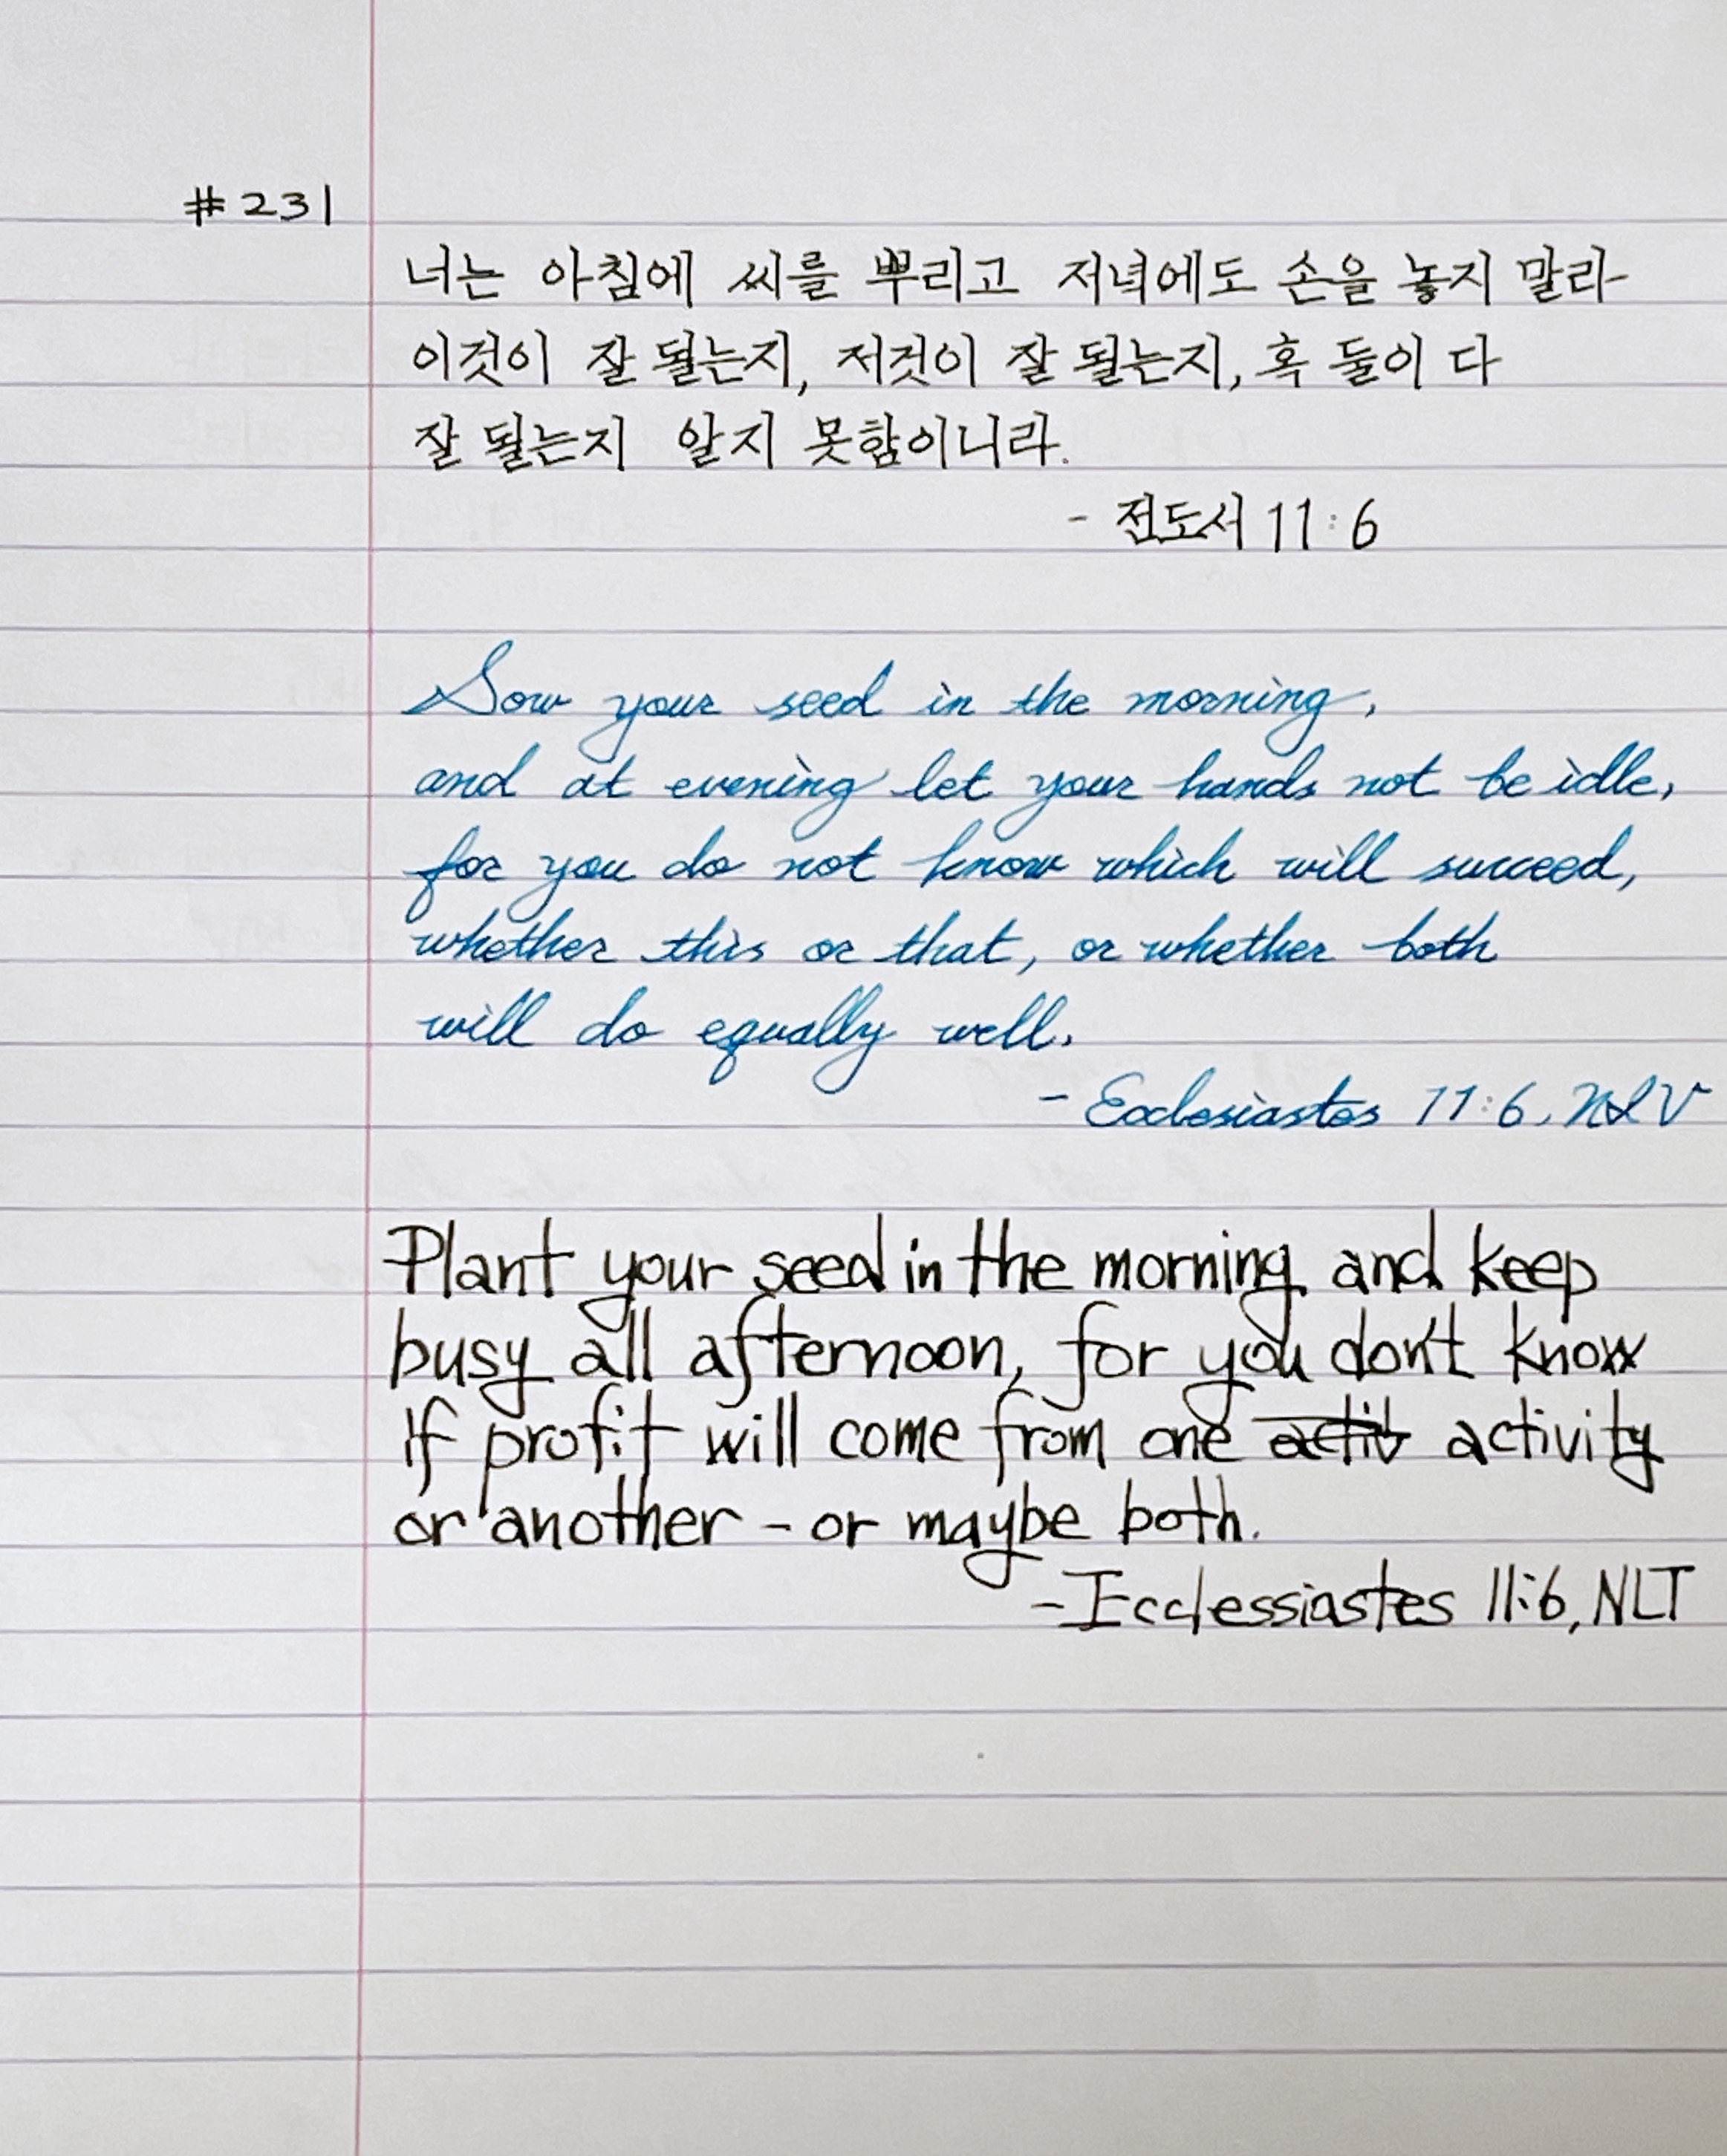 #231
너는 아침에 씨를 뿌리고 저녁에도 손을 놓지 말라
이것이 잘 될는지, 저것이 잘 될는지, 혹 둘이 다
잘 될는지 알지 못함이니라.
- 전도서 11:6
Sow your seed in the morning,
and at evening let your hands not be idle,
for you do not know which will succeed,
whether this or that, or whether both
will do equally well.
- Ecclesiastes 11:6, NLV
Plant your seed in the morning and keep
busy all afternoon, for you don't know
If profit will come from one activ activity
or another - or maybe both.
- Ecclessiastes 11:6, NLT